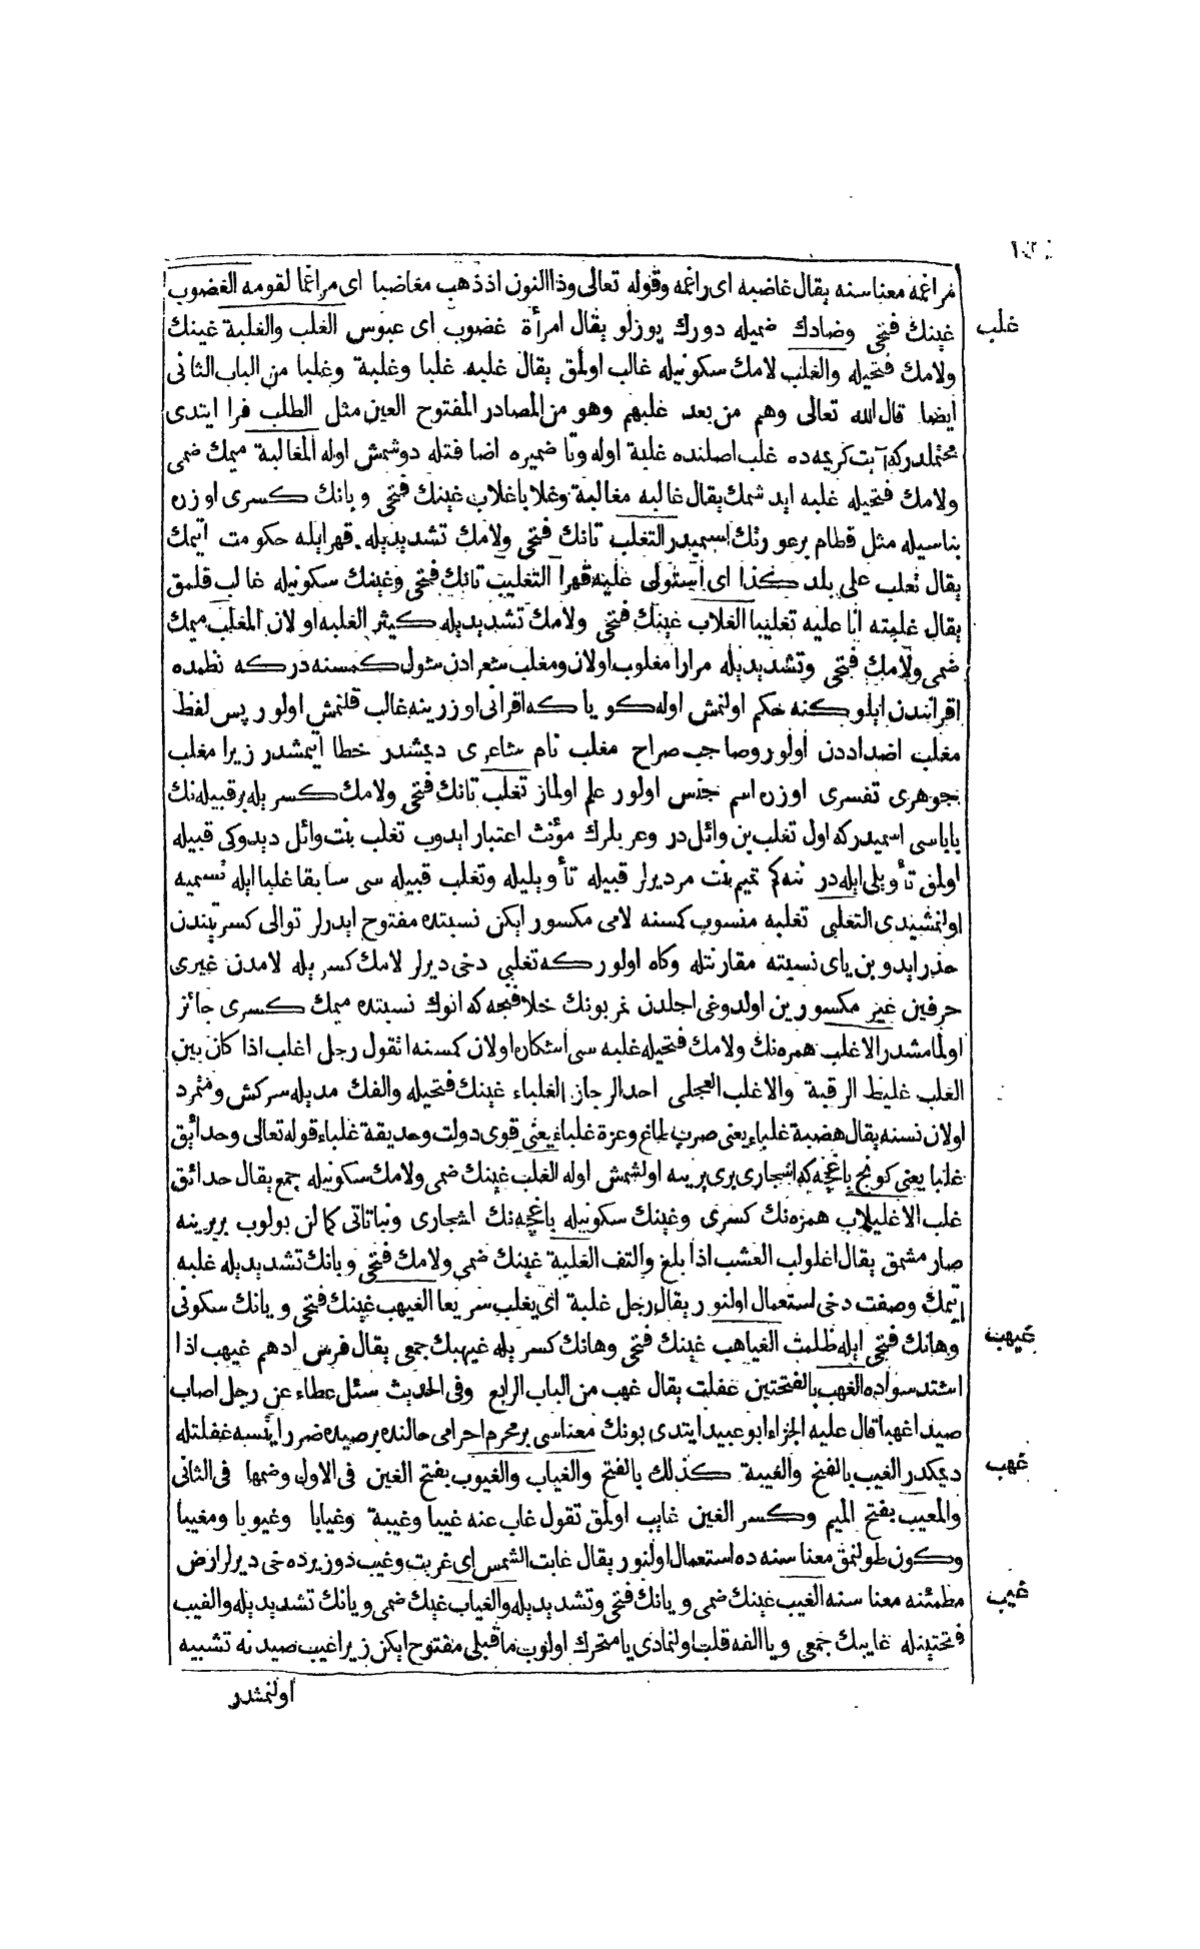 مراغمه معناسنه يقال غاضبه اى راغمه وقوله تعالى وذا النون اذ ذهب مغاضبا اى مراغما لقومه الغضوب
غلب
غينك فتحى وضادك ضميله دورك يوزلو يقال امرأة غضوب اى عبوس الغلب والغلبة غينك
ولامك فتحيله والغلب لامك سكونيله غالب اولمق يقال غلبه غلبا وغلبة وغلبا من الباب الثانى
ايضا قال الله تعالى وهم من بعد غلبهم وهو من المصادر المفتوح العين مثل الطلب فرا ايتدى
محتملدركه آيت كريمه ده غلب اصلنده غلبة اوله وتا ضميره اضافتله دوشمش اوله المغالبة ميمك ضمى
ولامك فتحيله غلبه ايدشمك يقال غالبه مغالبة وغلابا غلاب غينك فتحى وبانك كسرى اوزن
بناسيله مثل قطام برعورتك اسميدر التغلب تانك فتحى ولامك تشديديله قهرايله حكومت اتمك
يقال تغلب على بلد كذا اى استولى عليه قهرا التغليب تانك فتحى وغينك سكونيله غالب قلمق
يقال غلبته انا عليه تغليبا الغلاب غينك فتحى ولامك تشديديله كثير الغلبه اولان المغلب ميمك
ضمى ولامك فتحى وتشديديله مرارا مغلوب اولان ومغلب شعرادن شول كمسنه دركه نظمده
اقرانندن ايلو كنه حكم اولنمش اوله كويا كه اقرانى اوزرينه غالب قلنمش اولور پس لفظ
مغلب اضداددن اولور وصاحب صراح مغلب نام شاعرى ديمشدر خطا ايتمشدر زيرا مغلب
جوهرى تفسرى اوزره اسم جنس اولور علم اولماز تغلب تانك فتحى ولامك كسريله برقبيله نك
باباسى اسميدركه اول تغلب بن وائل در وعربلرك مؤنث اعتبار ايدوب تغلب بنت وائل ديدوكى قبيله
اولمق تأويلى ايله در نته كم تميم بنت مر ديرلر قبيله تأويليله وتغلب قبيله سى سابقا غلبا ايله تسميه
اولنمشيدى التغلبى تغلبه منسوب كسنه لامى مكسور ايكن نسبتده مفتوح ايدرلر توالى كسرتيندن
حذر ايدوبن ياى نسبته مقارنتله وكاه اولور كه تغلبى دخى ديرلر لامك كسريله لامدن غيرى
حرفين غير مكسورين اولدوغى اجلدن نمر بونك خلافجه كه انوك نسبتده ميمك كسرى جائز
اولمامشدر الاغلب همزه نك ولامك فتحيله غلبه سى اشكاره اولان كمسنه تقول رجل اغلب اذا كان بين
الغلب غليظ الرقبة والاغلب العجلى احد الرجاز الغلباء غينك فتحيله والفك مديله سركش ومتمرد
اولان نسنه يقال هضبة غلباء يعنى صرب طاغ وعزة غلباء يعنى قوى دولت وحديقة غلباء قوله تعالى وحدائق
غلبا يعنى كونج باغچه كه اشجارى برى برينه اولشمش اوله الغلب غينك ضمى ولامك سكونيله جمع يقال حدائق
غلب الاغليلاب همزه نك كسرى وغينك سكونيله باغچه نك اشجارى ونباتاتى كمالن بولوب بربرينه
صارمشمق يقال اغلولب العشب اذا بلغ والتف الغلبة غينك ضمى ولامك فتحى وبانك تشديديله غلبه
ايتمك وصفت دخى استعمال اولنور يقال رجل غلبة اى يغلب سريعا الغيهب غينك فتحى ويانك سكونى
غيهب
وهانك فتحى ايله ظلمت الغياهب غينك فتحى وهانك كسريله غيهبك جمعى يقال فرس ادهم غيهب اذا
اشتد سواده الغهب بالفتحتين غفلت يقال غهب من الباب الرابع وفى الحديث سئل عطاء عن رجل اصاب
صيدا غهبا قال عليه الجزاء ابو عبيد ايتدى بونك معناسى بر محرم احرامى حالنده برصيده ضرر ايتسه غفلتله
غهب
ديمكدر الغيب بالفتح والغيبة كذلك بالفتح والغياب والغيوب بفتح الغين فى الاول وضمها فى الثانى
والمغيب بفتح الميم وكسر الغين غايب اولمق تقول غاب عنه غيبا وغيبة وغيابا وغيوبا ومغيبا
وكون طولنمق معناسنه ده استعمال اولنور يقال غابت الشمس اى غربت وغيب دوزيرده خى ديرلر ارض
غيب
مطمئنه معناسنه الغيب غينك ضمى ويانك فتحى وتشديديله والغياب غينك ضمى ويانك تشديديله والغيب
فتحتينله غايبك جمعى ويا الفه قلب اولنمادى يا متحرك اولوب ماقبلى مفتوح ايكن زيرا غيب صيدنه تشبيه
اولنمشدر